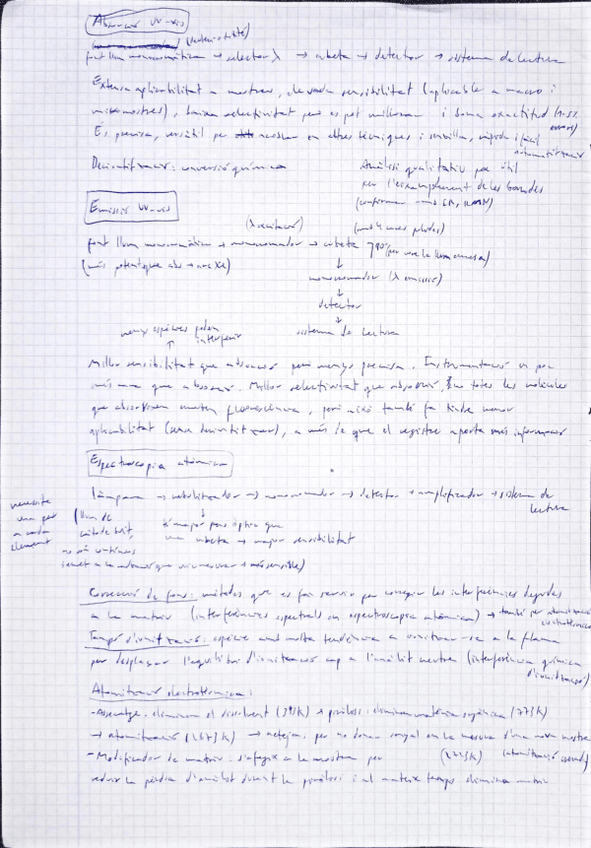 Absorció UV-vis
font llum monocromàtica → selector λ → cubeta → detector → sistema de lectura
Extensa aplicabilitat a mostres, elevada sensibilitat (aplicable a macro i
micromostres), baixa selectivitat però es pot millorar i bona exactitud (1-5%
És precisa, versàtil per acoblar en altres tècniques i senzilla, ràpida i fàcil
automatització
Derivatització: conversió química
Anàlisi qualitatiu poc útil
per l'eixamplament de les bandes
(confirmar amb IR, RMN)
Emissió UV-vis
(λ excitació)
(amb 4 cares polides)
font llum monocromàtica → monocromador → cubeta 90º (per veure la llum emesa)
(més potent que abs → arc Xe)
monocromador (λ emissió)
detector
sistema de lectura
menys espècies poden
interferir
Millor sensibilitat que absorció però menys precisa. Instrumentació un poc
més cara que absorció. Millor selectivitat que absorció, no totes les molècules
que absorbeixen emeten fluorescència, però això també fa tindre menor
aplicabilitat (sense derivatitzar), a més de que el registre aporta més informació
Espectroscopia atòmica
làmpara → nebulitzador → monocromador → detector → amplificador → sistema de
lectura
necessite
una per
a cada
element
(llum de
càtode buit,
no són contínues
és major pas òptic que
una cubeta → major sensibilitat
més sensible)
Correcció de fons: mètodes que es fan servir per corregir les interferències degudes
a la matriu (interferències espectrals en espectroscopia atòmica) → també per atomització
electrotèrmica
Tampó d'ionització: espècie amb molta tendència a ionitzar-se a la flama
per desplaçar l'equilibri d'ionització cap a l'anàlit neutre (interferència química
d'ionització)
Atomització electrotèrmica:
- Assecatge: elimina el dissolvent (393K) → piròlisi: elimina matèria orgànica (773K)
→ atomització → neteja: per no donar senyal en la mesura d'una nova mostra
- Modificador de matriu: s'afegix a la mostra per
reduir la pèrdua d'anàlit durant la piròlisi i al mateix temps elimina matriu